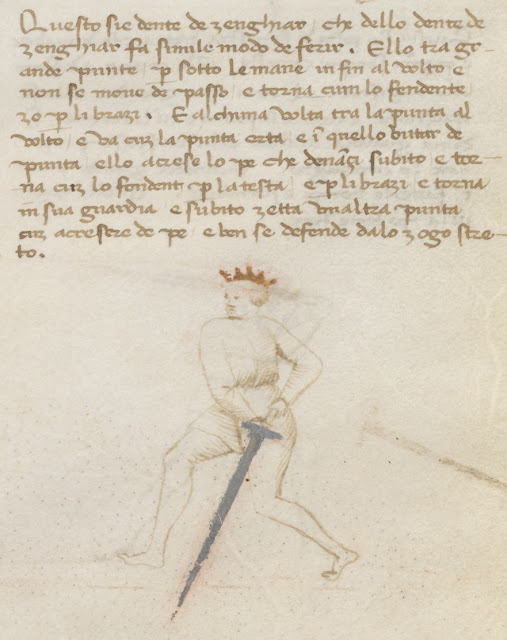 Questo sie dente de zenghiar / che dello dente de
zenghiar fa simile modo de ferir. Ello tra gr-
ande punte / p sotto le mane in fin al volto e
non se move de passo / e torna cum lo fendente
zo p li brazi. E alchuna volta tra la punta al
volto / e va cum la punta erta / e ĩ quello butar de
punta ello acrese lo pe che denãçi subito e tor-
na cum lo fendenti p la testa / e p li brazi e torna
in sua guardia e subito zetta un altra punta
cum acresere de pe e ben se defende dalo zogo stre-
to.